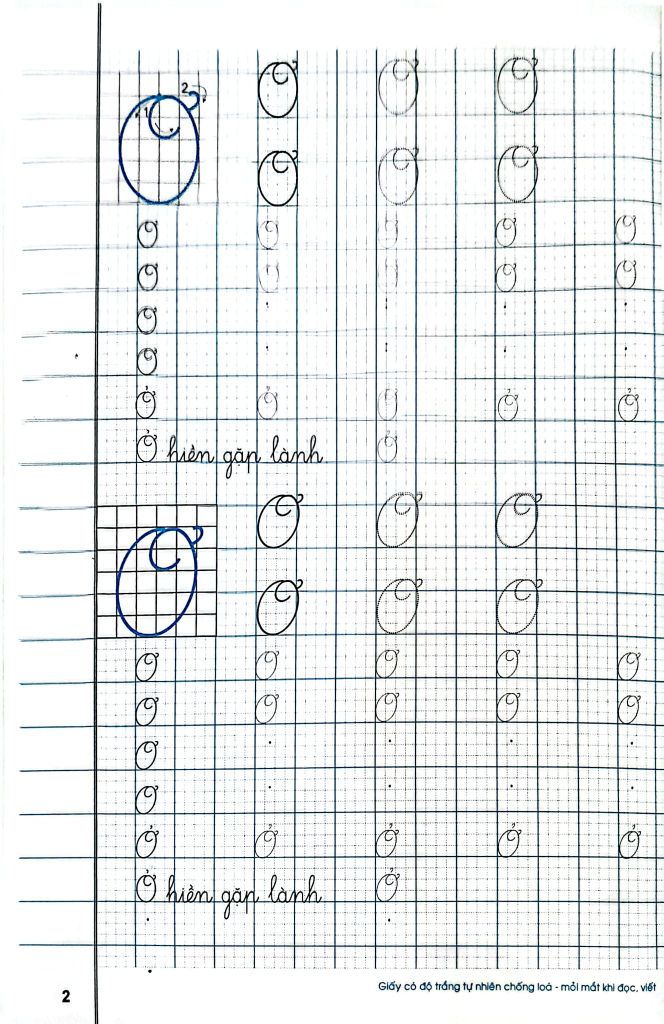 1 2
Ơ Ơ Ơ Ơ
Ơ Ơ Ơ
Ơ Ơ Ơ Ơ Ơ
Ơ Ơ Ơ Ơ Ơ
Ơ
Ơ
Ở Ở Ở Ở Ở
Ở hiền gặp lành Ở
Ơ Ơ Ơ Ơ
Ơ Ơ Ơ
Ơ Ơ Ơ Ơ Ơ
Ơ Ơ Ơ Ơ Ơ
Ơ
Ơ
Ở Ở Ở Ở Ở
Ở hiền gặp lành Ở
2
Giấy có độ trắng tự nhiên chống loá - mỏi mắt khi đọc, viết